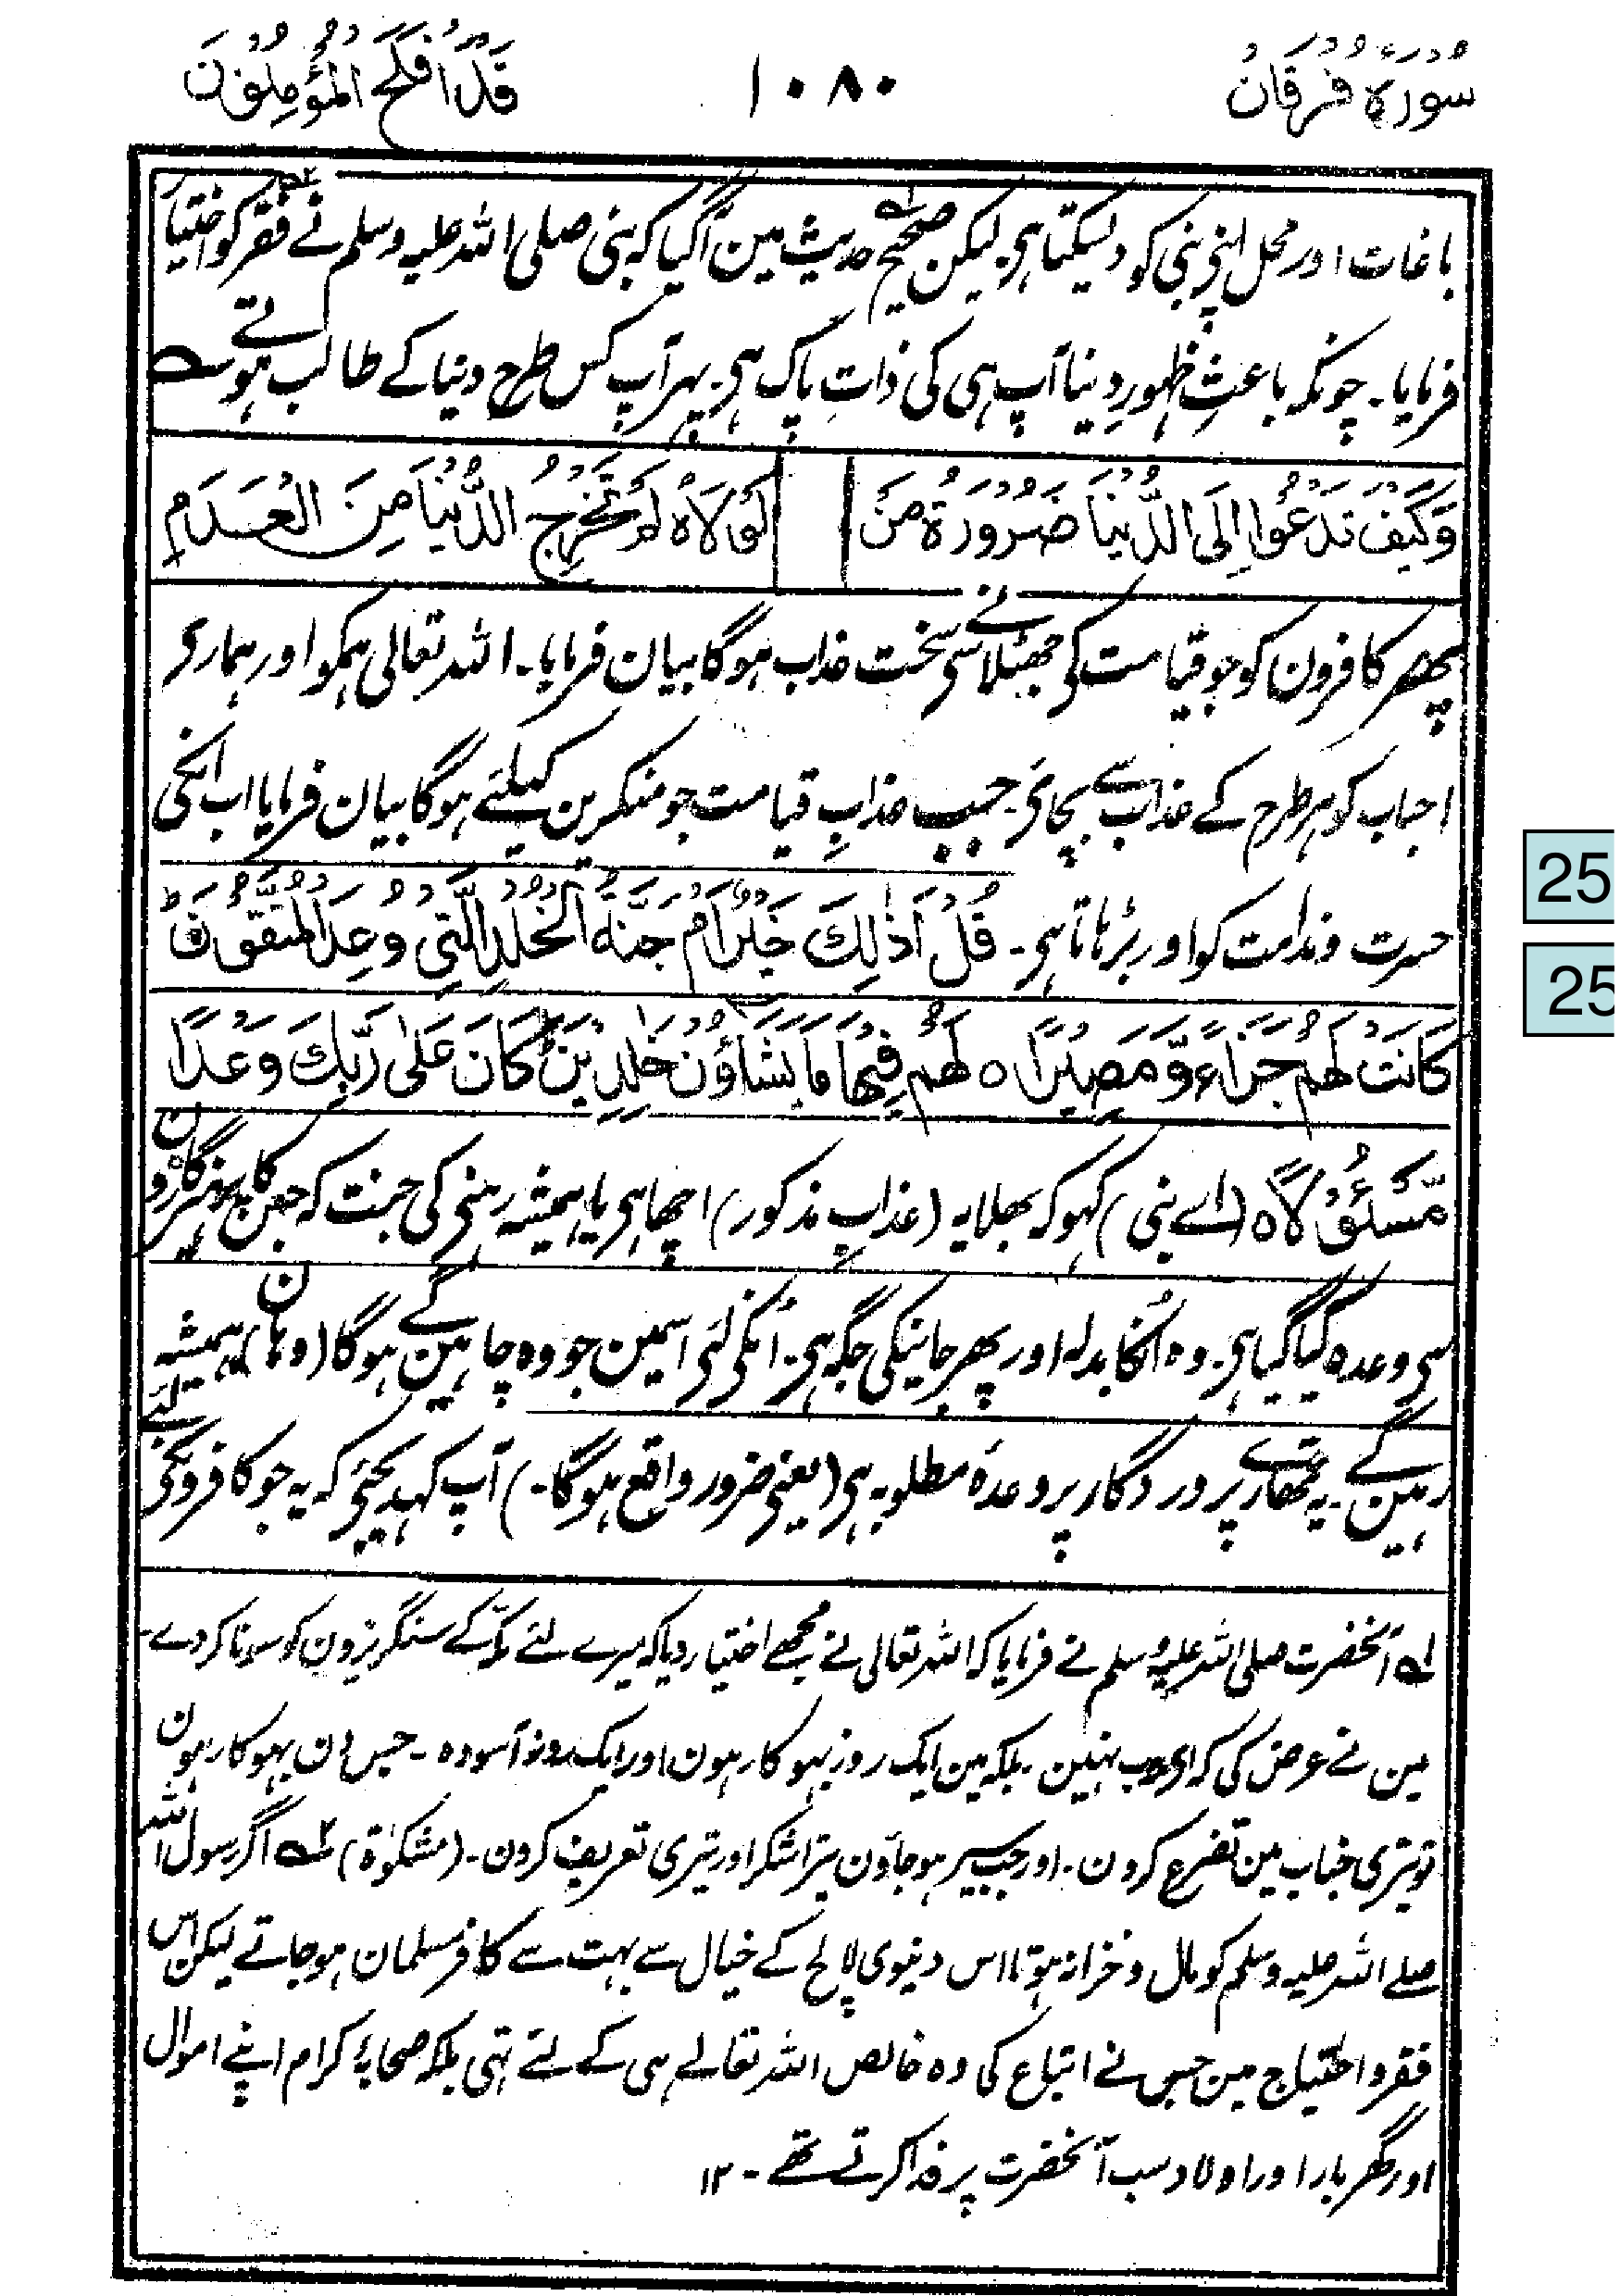 سُوْرَةُ فُرْقَانُ
۱۰۸۰
قَدْ اَفْلَحَ الْمُؤْمِنُوْنَ
باغات اور محل اپنی نبی کو دلیکتا ہی۔ لیکن صحیح ۱ حدیث مین آگیا کہ نبی صلی اللہ علیہ وسلم نے فقر ۲ کو اختیار
فرمایا۔ چونکہ باعثِ ظہورِ دنیا آپ ہی کی ذاتِ پاک ہی۔ پہر آپ کس طرح دنیا کے طالب ہوتے ؎
وَكَيْفَ تَدْعُوْا اِلَى الدُّنْيَا ضَرُوْرَةُ مَنْ لَوْلَاهُ لَمْ تَخْرُجِ الدُّنْيَا مِنَ الْعَدَمِ
پھر کافرون کو جو قیامت کی جھٹلانے سی سخت عذاب ہوگا بیان فرمایا۔ اللہ تعالی ہمکو اور ہماری
احباب کو ہر طرح کے عذاب سے بچائی۔ جب عذابِ قیامت جو منکرین کیلئے ہوگا بیان فرمایا اب انکی
حسرت وندامت کو اور بڑہاتا ہی۔ قُلْ اَذٰلِكَ خَيْرٌ اَمْ جَنَّةُ الْخُلْدِ الَّتِيْ وُعِدَ الْمُتَّقُوْنَ ط
كَانَتْ لَهُمْ جَزَآءً وَّمَصِيْرًا ہ لَهُمْ فِيْهَا مَا يَشَآؤُنَ خٰلِدِيْنَ ط كَانَ عَلٰى رَبِّكَ وَعْدًا
مَّسْئُوْلًا ہ (اے نبی) کہو کہ بھلا یہ (عذابِ مذکور) اچھا ہی یا ہمیشہ رہنی کی جنت کہ جسکا پرہیزگارون
سی وعدہ کیا گیا ہی۔ وہ اُنکا بدلہ اور پھر جانیکی جگہ ہی۔ اُنکی لئی اسمین جو وہ چاہین گے ہوگا (وہان) ہمیشہ
رہین گے۔ یہ تمھارے پروردگار پر وعدہ مطلوبہ ہی (یعنی ضرور واقع ہوگا۔) آپ کہدیجئی کہ یہ جو کافرونکی لئے
۱ آنحضرت صلی اللہ علیہ وسلم نے فرمایا کہ اللہ تعالی نے مجھے اختیار دیا کہ میرے لئے مکّہ کے سنگریزون کو سونا کردے۔
مین نے عرض کی کہ ای رب نہین۔ بلکہ مین ایک روز بہوکا رہون اور ایک روز آسودہ۔ جس دن بہوکا رہون
تو تیری جناب مین تضرع کرون۔ اور جب سیر ہوجاؤن تیرا شکر اور تیری تعریف کرون۔ (مشکوٰۃ) ۲ اگر رسول اللہ
صلے اللہ علیہ وسلم کو مال و خزانہ ہوتا اس دنیوی لالح کے خیال سے بہت سے کافر مسلمان ہوجاتے لیکن اس
فقر و احتیاج مین جس نے اتباع کی وہ خالص اللہ تعالے ہی کے لئے تہی بلکہ صحابۂ کرام اپنے اموال
اور گھر بار اور اولاد سب آنحضرت پر فدا کرتے تھے۔ ۱۲
25
25